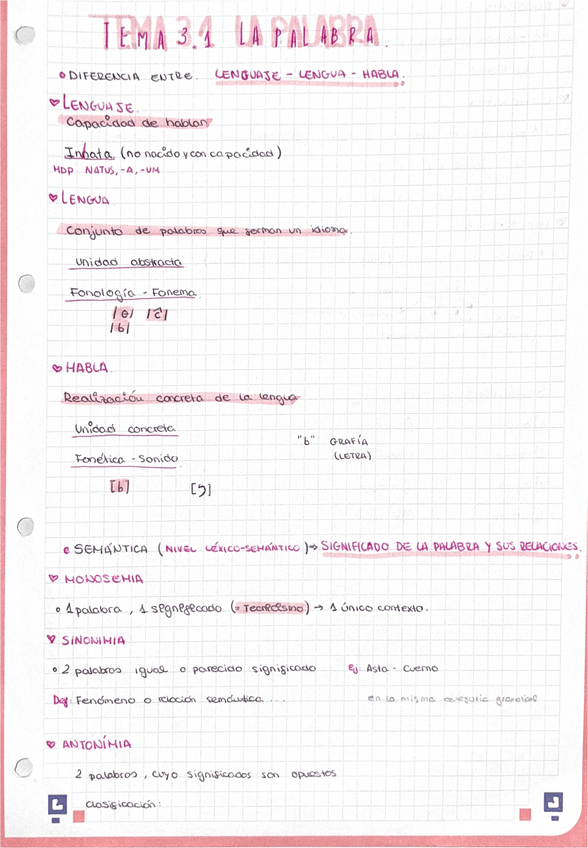 TEMA 3.1 LA PALABRA.
DIFERENCIA ENTRE. LENGUAJE - LENGUA - HABLA.
LENGUAJE.
Capacidad de hablar
Innata (no nacido y con capacidad)
MDP NATUS, -A, -UM
LENGUA
Conjunto de palabras que forman un idioma.
Unidad abstracta
Fonología - Fonema.
/θ/ /ĉ/
/b/
HABLA.
Realización concreta de la lengua
Unidad concreta
"b" GRAFÍA
(LETRA)
Fonética - Sonido
[b]
SEMÁNTICA (NIVEL LÉXICO-SEMÁNTICO) → SIGNIFICADO DE LA PALABRA Y SUS RELACIONES.
MONOSEMIA
1 palabra, 1 significado (= Tecnicismo) → 1 único contexto.
SINONIMIA
2 palabras igual o parecido significado Ej: Asta - Cuerno
Def: Fenómeno o relación semántica ... en la misma categoría gramatical
ANTONÍMIA
2 palabras, cuyo significados son opuestos
Clasificación: